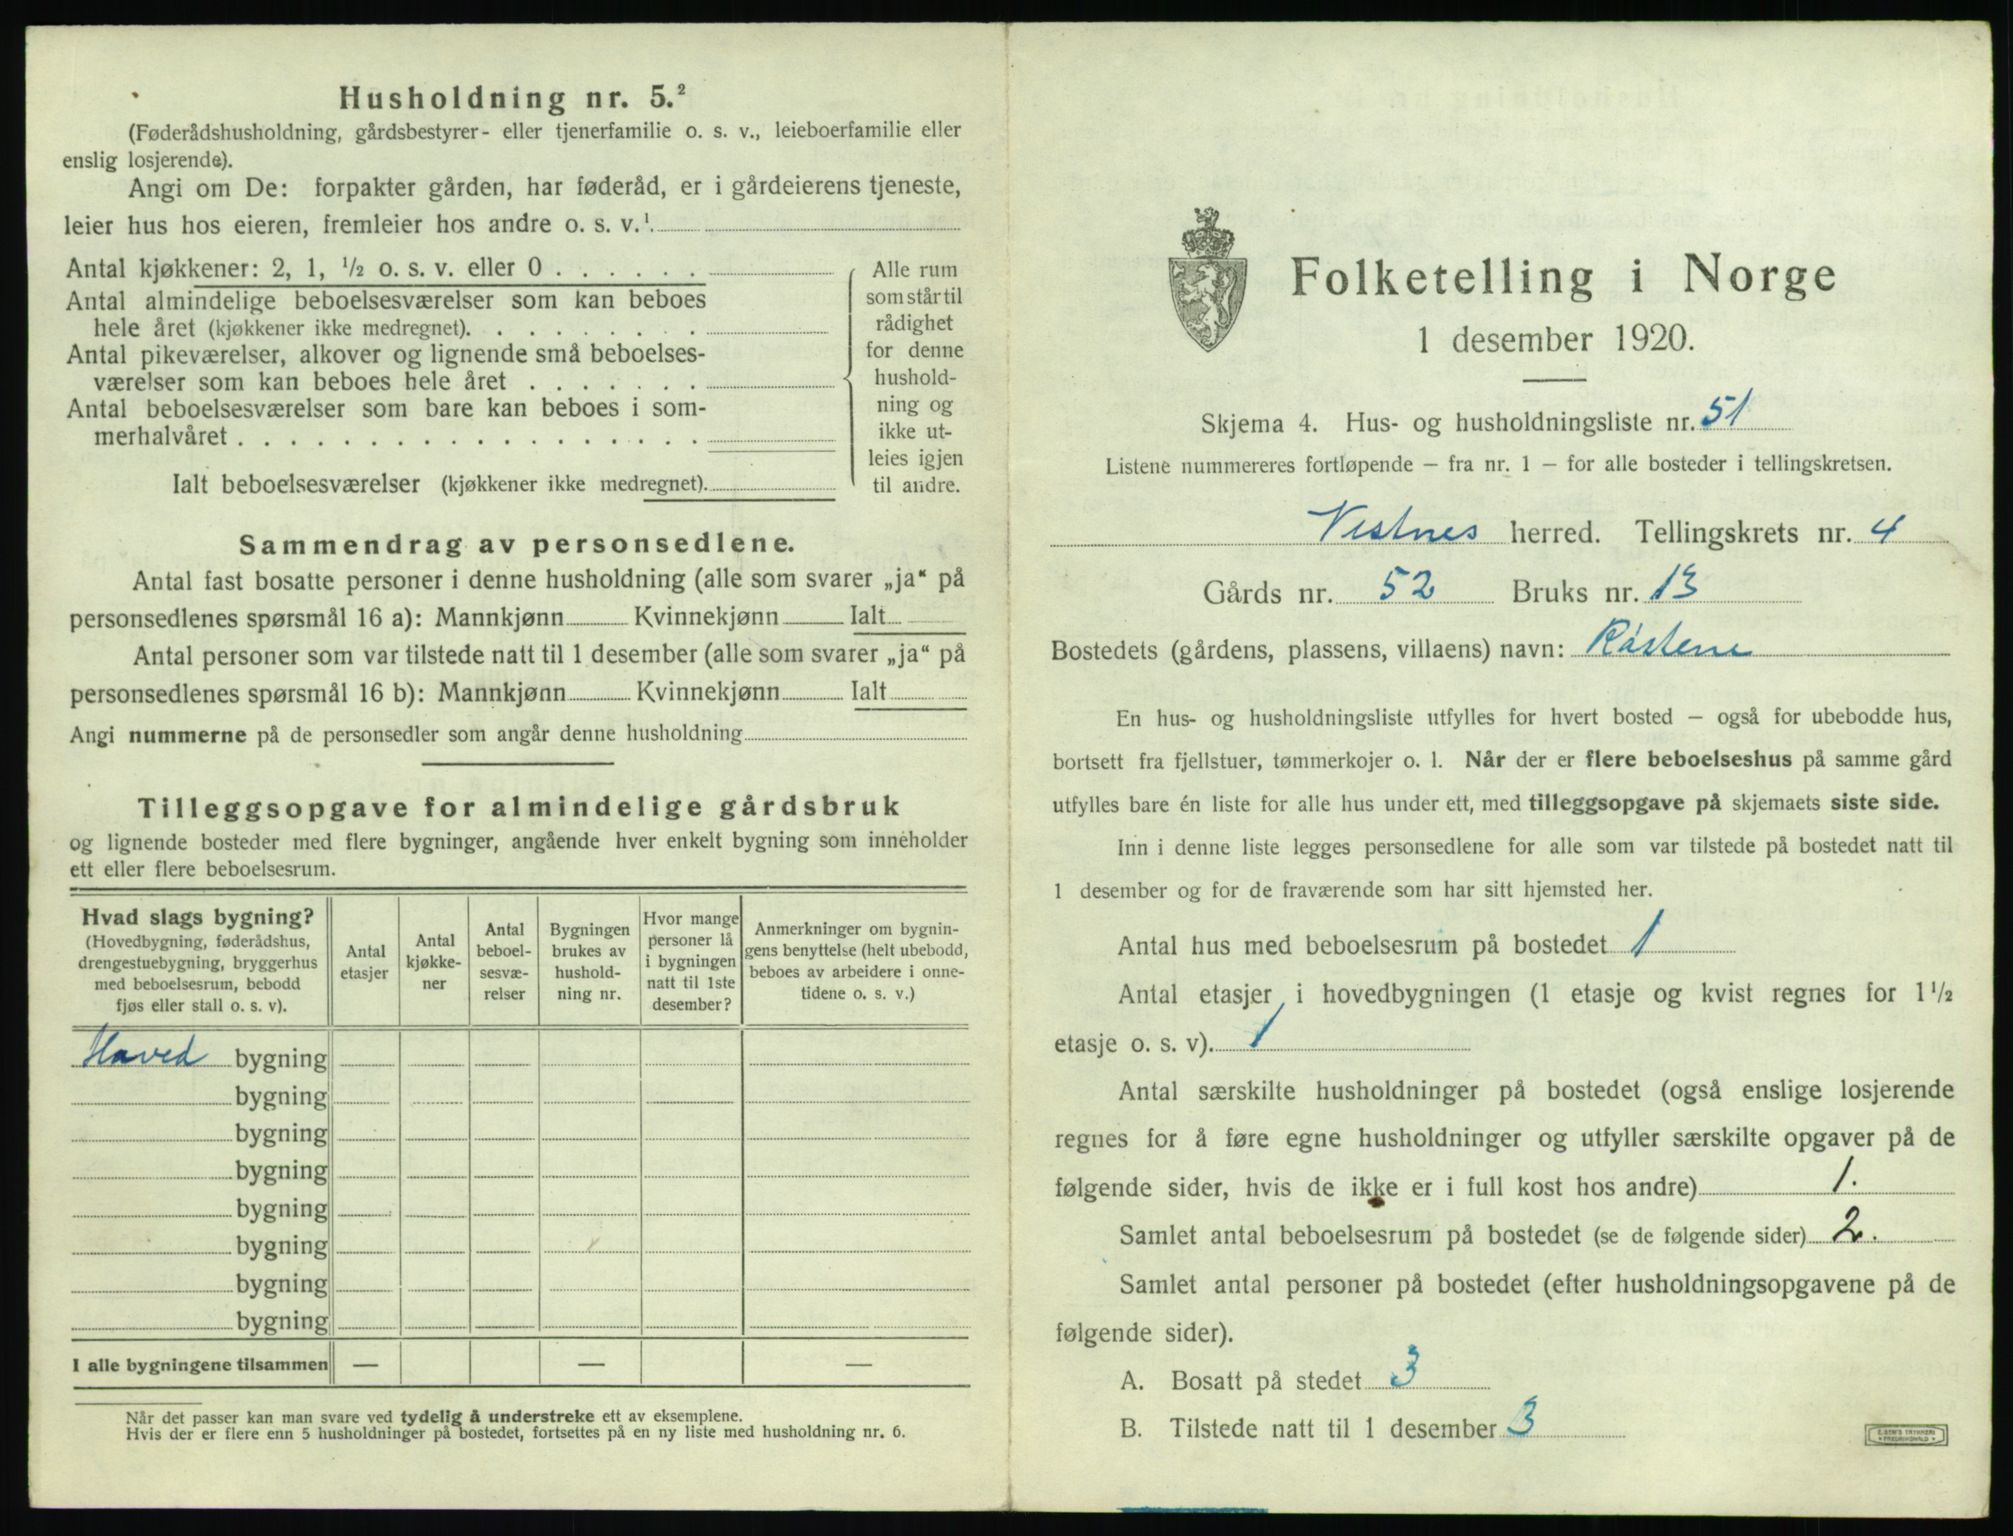 Husholdning nr. 5.²
(Føderådshusholdning, gårdsbestyrer- eller tjenerfamilie o. s. v., leieboerfamilie eller
enslig losjerende).
Angi om De: forpakter gården, har føderåd, er i gårdeierens tjeneste,
leier hus hos eieren, fremleier hos andre o. s. v.¹
Antal kjøkkener: 2, 1, ½ o. s. v. eller 0 . . . . . .
Antal almindelige beboelsesværelser som kan beboes
hele året (kjøkkener ikke medregnet). . . . . . . . .
Antal pikeværelser, alkover og lignende små beboelses-
værelser som kan beboes hele året . . . . . . .
Antal beboelsesværelser som bare kan beboes i som-
merhalvåret . . . . . . . . . . . . . . . . . .
Ialt beboelsesværelser (kjøkkener ikke medregnet).
Alle rum
som står til
rådighet
for denne
hushold-
ning og
ikke ut-
leies igjen
til andre.
Sammendrag av personsedlene.
Antal fast bosatte personer i denne husholdning (alle som svarer „ja“ på
personsedlenes spørsmål 16 a): Mannkjønn Kvinnekjønn Ialt
Antal personer som var tilstede natt til 1 desember (alle som svarer „ja“ på
personsedlenes spørsmål 16 b): Mannkjønn Kvinnekjønn Ialt
Angi nummerne på de personsedler som angår denne husholdning
Tilleggsopgave for almindelige gårdsbruk
og lignende bosteder med flere bygninger, angående hver enkelt bygning som inneholder
ett eller flere beboelsesrum.
Hvad slags bygning?
(Hovedbygning, føderådshus,
drengestuebygning, bryggerhus
med beboelsesrum, bebodd
fjøs eller stall o. s. v).
Antal
etasjer
Antal
kjøkke-
ner
Antal
beboel-
sesvæ-
relser
Bygningen
brukes av
hushold-
ning nr.
Hvor mange
personer lå
i bygningen
natt til 1ste
desember?
Anmerkninger om bygnin-
gens benyttelse (helt ubebodd,
beboes av arbeidere i onne-
tidene o. s. v.)
Hoved bygning
bygning
bygning
bygning
bygning
bygning
bygning
bygning
I alle bygningene tilsammen — — —
Når det passer kan man svare ved tydelig å understreke ett av eksemplene.
Hvis der er flere enn 5 husholdninger på bostedet, fortsettes på en ny liste med husholdning nr. 6.
Folketelling i Norge
1 desember 1920.
Skjema 4. Hus- og husholdningsliste nr. 51
Listene nummereres fortløpende – fra nr. 1 – for alle bosteder i tellingskretsen.
Vestnes herred. Tellingskrets nr. 4
Gårds nr. 52 Bruks nr. 13
Bostedets (gårdens, plassens, villaens) navn:
En hus- og husholdningsliste utfylles for hvert bosted – også for ubebodde hus,
bortsett fra fjellstuer, tømmerkojer o. l. Når der er flere beboelseshus på samme gård
utfylles bare én liste for alle hus under ett, med tilleggsopgave på skjemaets siste side.
Inn i denne liste legges personsedlene for alle som var tilstede på bostedet natt til
1 desember og for de fraværende som har sitt hjemsted her.
Antal hus med beboelsesrum på bostedet 1
Antal etasjer i hovedbygningen (1 etasje og kvist regnes for 1½
etasje o. s. v). 1
Antal særskilte husholdninger på bostedet (også enslige losjerende
regnes for å føre egne husholdninger og utfyller særskilte opgaver på de
følgende sider, hvis de ikke er i full kost hos andre) 1.
Samlet antal beboelsesrum på bostedet (se de følgende sider) 2.
Samlet antal personer på bostedet (efter husholdningsopgavene på de
følgende sider).
A. Bosatt på stedet 3
B. Tilstede natt til 1 desember 3